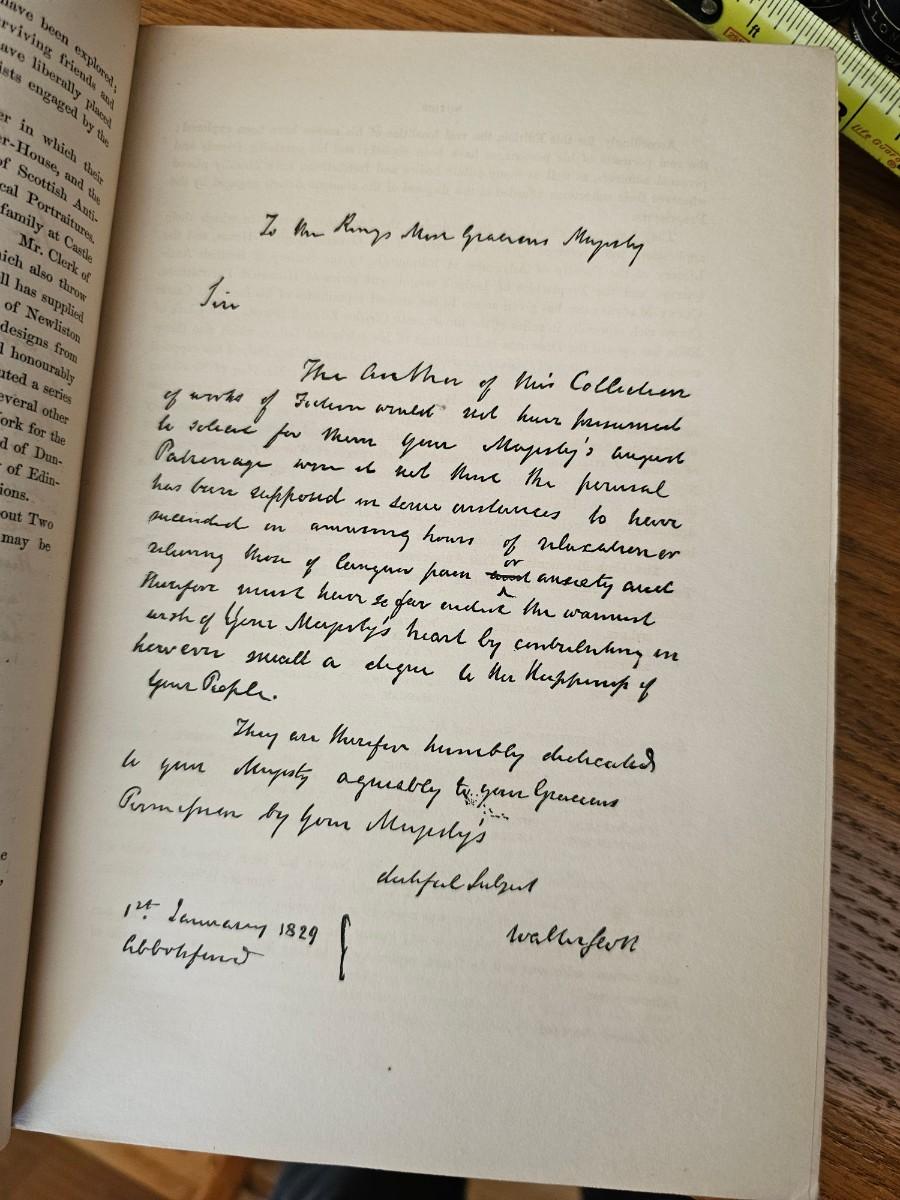 have been explored;
rviving friends and
ave liberally placed
ists engaged by the
er in which their
er-House, and the
of Scottish Anti-
cal Portraitures.
family at Castle
Mr. Clerk of
hich also throw
ll has supplied
of Newliston
designs from
d honourably
uted a series
everal other
ork for the
d of Dun-
of Edin-
ions.
out Two
may be
e
,
NOTICE
To the Kings Most Gracious Majesty
Sire
The Author of this Collection
of works of Fiction would not have presumed
to solicit for them your Majesty's august
Patronage were it not that the perusal
has been supposed in some instances to have
succeeded in amusing hours of relaxation or
relieving those of languor pain and or anxiety and
therefore must have so far aided the warmest
wish of Your Majesty's heart by contributing in
however small a degree to the Happiness of
Your People.
They are therefore humbly dedicated
to your Majesty agreeably to your Gracious
Permission by Your Majesty's
dutiful Subject
Walter Scott
1st. January 1829
Abbotsford
ft